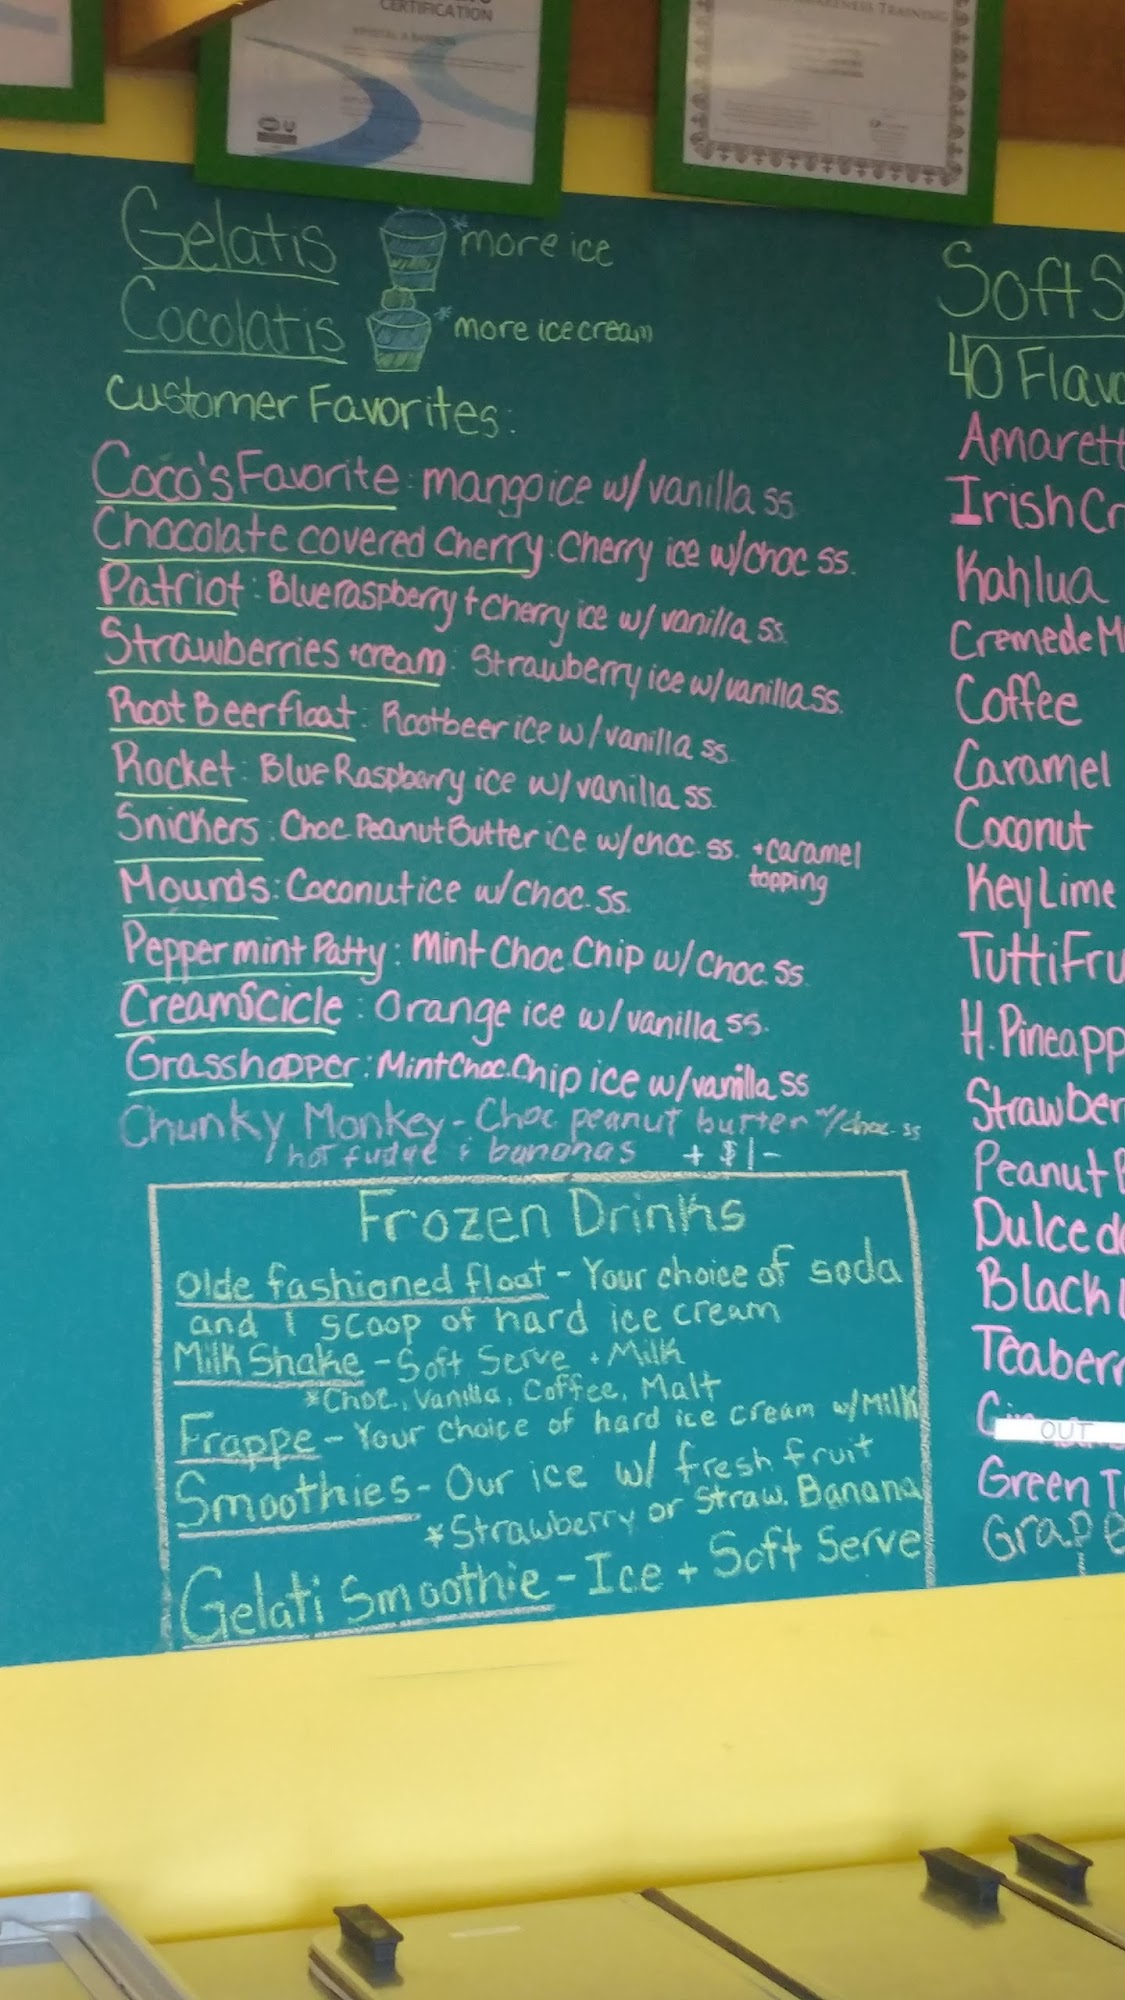 CERTIFICATION
AWARENESS TRAINING
Gelatis *more ice
Cocolatis *more ice cream
Customer Favorites:
Coco's Favorite: mango ice w/ vanilla ss
Chocolate covered Cherry: Cherry ice w/choc ss.
Patriot: Blueraspberry + Cherry ice w/ vanilla ss.
Strawberries +cream: Strawberry ice w/vanilla ss.
Root Beer float: Rootbeer ice w/vanilla ss.
Rocket: Blue Raspberry ice w/vanilla ss.
Snickers: Choc Peanut Butter ice w/choc. ss. +caramel
topping
Mounds: Coconut ice w/choc. Ss.
Peppermint Patty: Mint Choc. Chip w/ choc. ss.
CreamScicle: Orange ice w/vanilla ss.
Grasshopper: Mint Choc. Chip ice w/vanilla ss
Chunky Monkey - Choc. peanut butter w/choc. ss
hot fudge + bananas + $1-
Frozen Drinks
Olde fashioned float - Your choice of soda
and 1 scoop of hard ice cream
Milk Shake - Soft Serve + Milk
*Choc, Vanilla, Coffee, Malt
Frappe - Your choice of hard ice cream w/Milk
Smoothies - Our ice w/ fresh fruit
*Strawberry or Straw. Banana
Gelati Smoothie - Ice + Soft Serve
Soft S
40 Flavo
Amarett
Irish Cr
Kahlua
Creme de M
Coffee
Caramel
Coconut
Key Lime
Tutti Fru
H. Pineapp
Strawber
Peanut B
Dulce de
Black
Teaberr
OUT
Green T
Grape